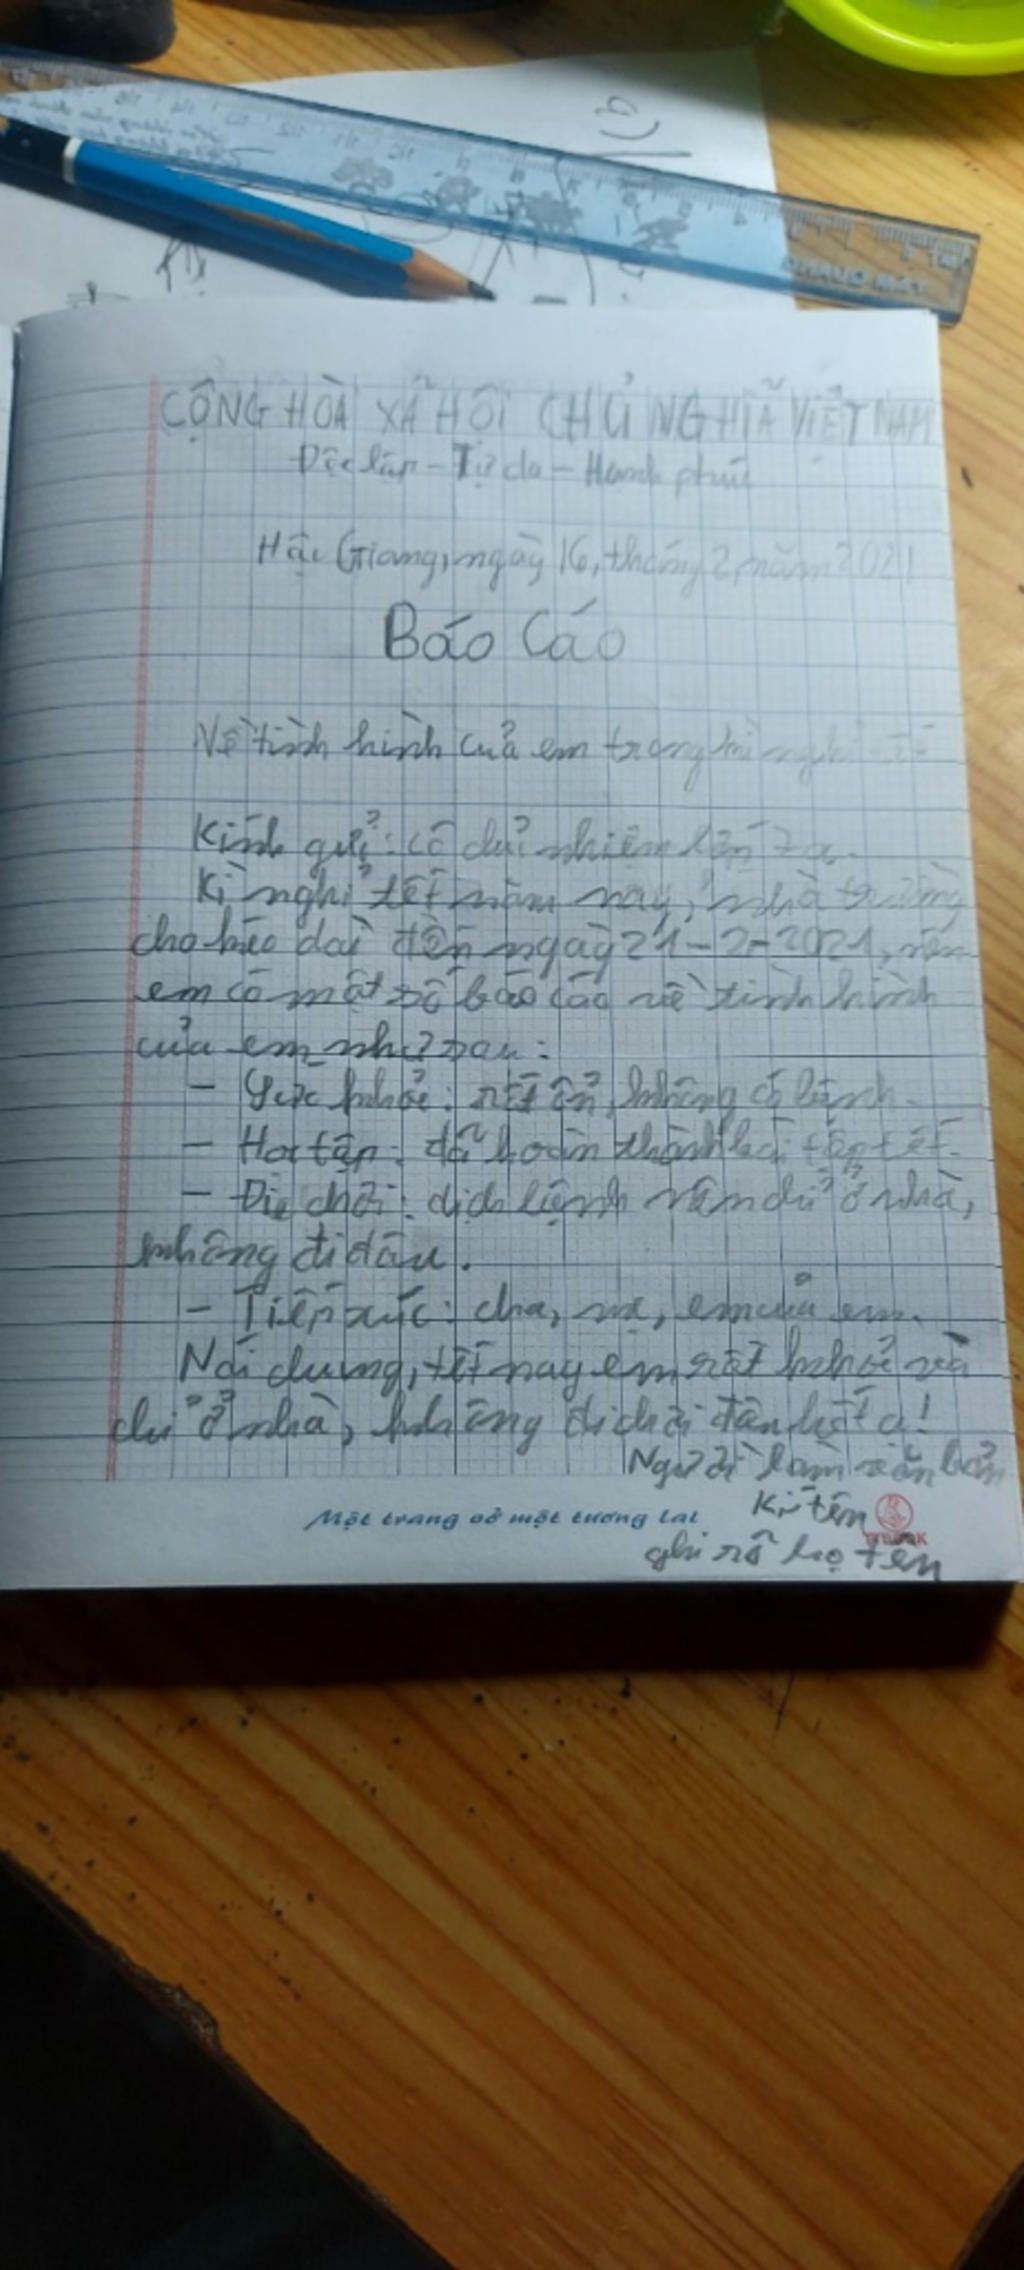 a)
CỘNG HÒA XÃ HỘI CHỦ NGHĨA VIỆT NAM
Độc lập - Tự do - Hạnh phúc
Hậu Giang, ngày 16, tháng 2, năm 2021
Báo Cáo
Về tình hình của em trong kì nghỉ
Kính gửi: Cô chủ nhiệm
Kì nghỉ tết năm nay, nhà trường
cho kéo dài đến ngày 21-2-2021, nên
em có một số báo cáo về tình hình
của em như sau:
- Sức khỏe: rất ổn, không có bệnh.
- Học tập: đã hoàn thành bài tập tết.
- Đi chơi: dịch bệnh nên chỉ ở nhà,
không đi đâu.
- Tiếp xúc: cha, mẹ, em của em.
Nói chung, tết nay em rất khỏe và
chỉ ở nhà, không đi chơi đâu hết ạ!
Người làm văn bản
Một trang vở một tương lai
Kí tên
ghi rõ họ tên